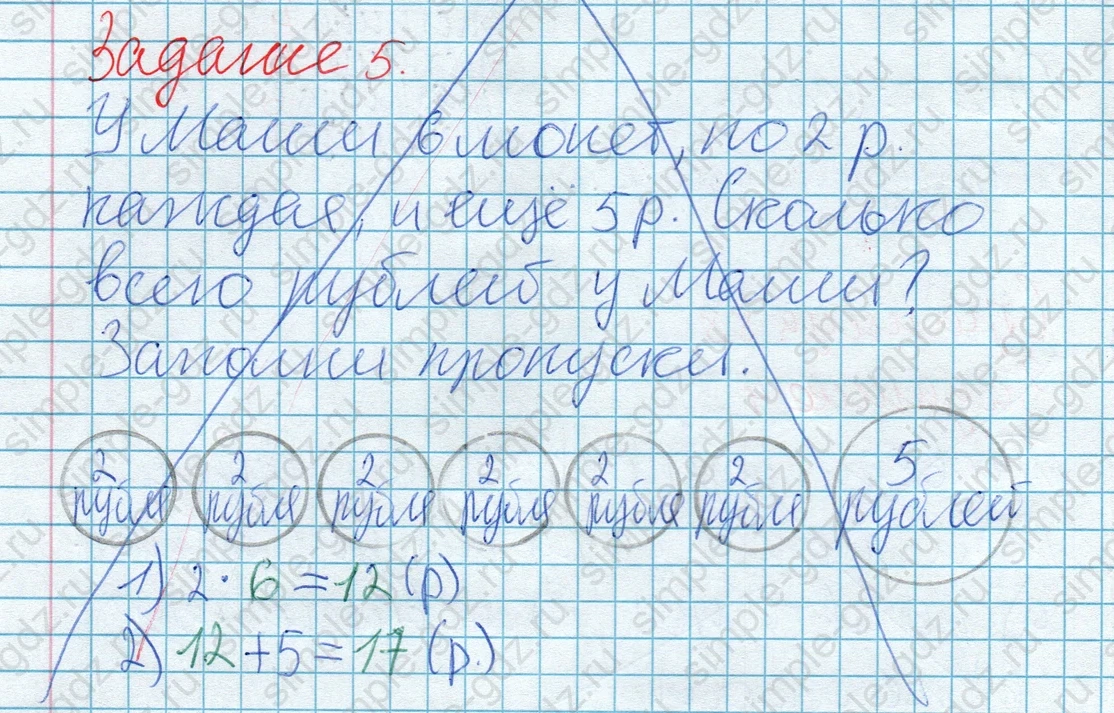 Задание 5.
У Маши 6 монет, по 2 р.
каждая, и ещё 5 р. Сколько
всего рублей у Маши?
Заполни пропуски.
2 рубля 2 рубля 2 рубля 2 рубля 2 рубля 2 рубля 5 рублей
1) 2 · 6 = 12 (р)
2) 12 + 5 = 17 (р.)
simple-gdz.ru